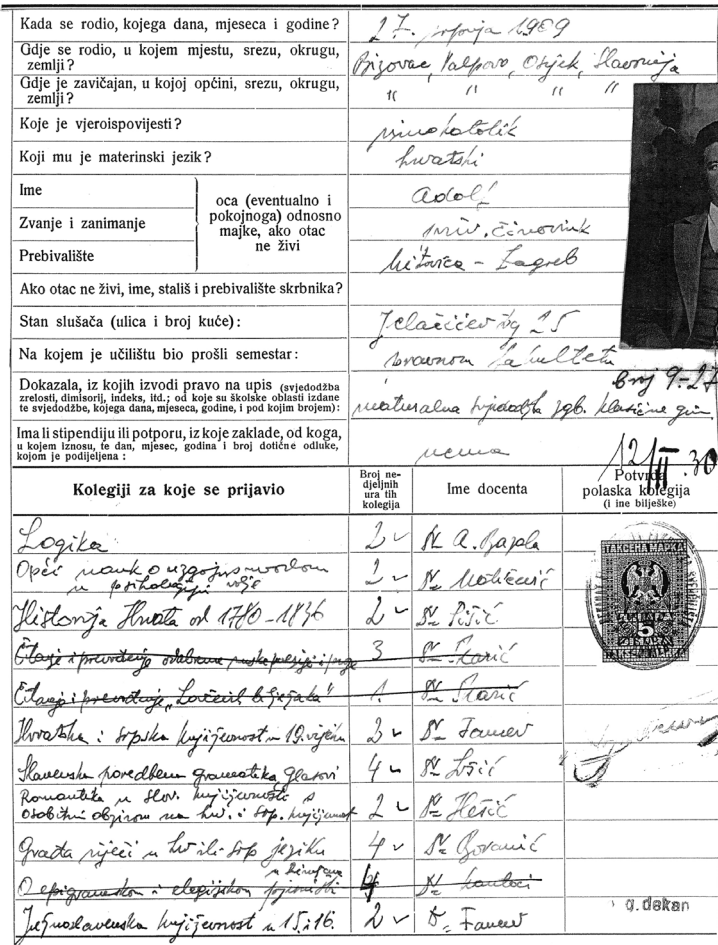 Kada se rodio, kojega dana, mjeseca i godine? 27. srpnja 1909
Gdje se rodio, u kojem mjestu, srezu, okrugu, zemlji? Bizovac, Valpovo, Osijek, Slavonija
Gdje je zavičajan, u kojoj općini, srezu, okrugu, zemlji? " " " "
Koje je vjeroispovijesti? rimokatolik
Koji mu je materinski jezik? hrvatski
Ime Adolf
Zvanje i zanimanje činovnik
Prebivalište Zagreb
oca (eventualno i pokojnoga) odnosno majke, ako otac ne živi
Ako otac ne živi, ime, stališ i prebivalište skrbnika?
Stan slušača (ulica i broj kuće): Jelačićev trg 25
Na kojem je učilištu bio prošli semestar: pravnom fakultetu
broj 9-27
Dokazala, iz kojih izvodi pravo na upis (svjedodžba zrelosti, dimisorij, indeks, itd.; od koje su školske oblasti izdane te svjedodžbe, kojega dana, mjeseca, godine, i pod kojim brojem): maturalna svjedodžba zgb. klasične gim
Ima li stipendiju ili potporu, iz koje zaklade, od koga, u kojem iznosu, te dan, mjesec, godina i broj dotične odluke, kojom je podijeljena: nema
12/II.30
Kolegiji za koje se prijavio
Broj nedjeljnih ura tih kolegija
Ime docenta
Potvrda polaska kolegija (i ine bilješke)
Logika 2 Dr A. Bazala
Opći nauk o uzgoju s uvodom
u psihologiju volje 2 Dr
Historija Hrvata od 1780-1836 2 Dr Šišić
3 Dr
1. Dr
Hrvatska i srpska književnost u 19. vijeku 2 Dr Fancev
Slavenska poredbena gramatika, glasovi 4 Dr
Romantika u slov. književnosti s
osobitim obzirom na hrv. i srp. književnost 2 Dr
Građa riječi u hrv ili srp jeziku 4 Dr
O epigramskom i elegijskom 4 Dr
Južnoslavenska književnost u 15. i 16. 2 Dr Fancev
ТАКСЕНА МАРКА
5
g. dekan